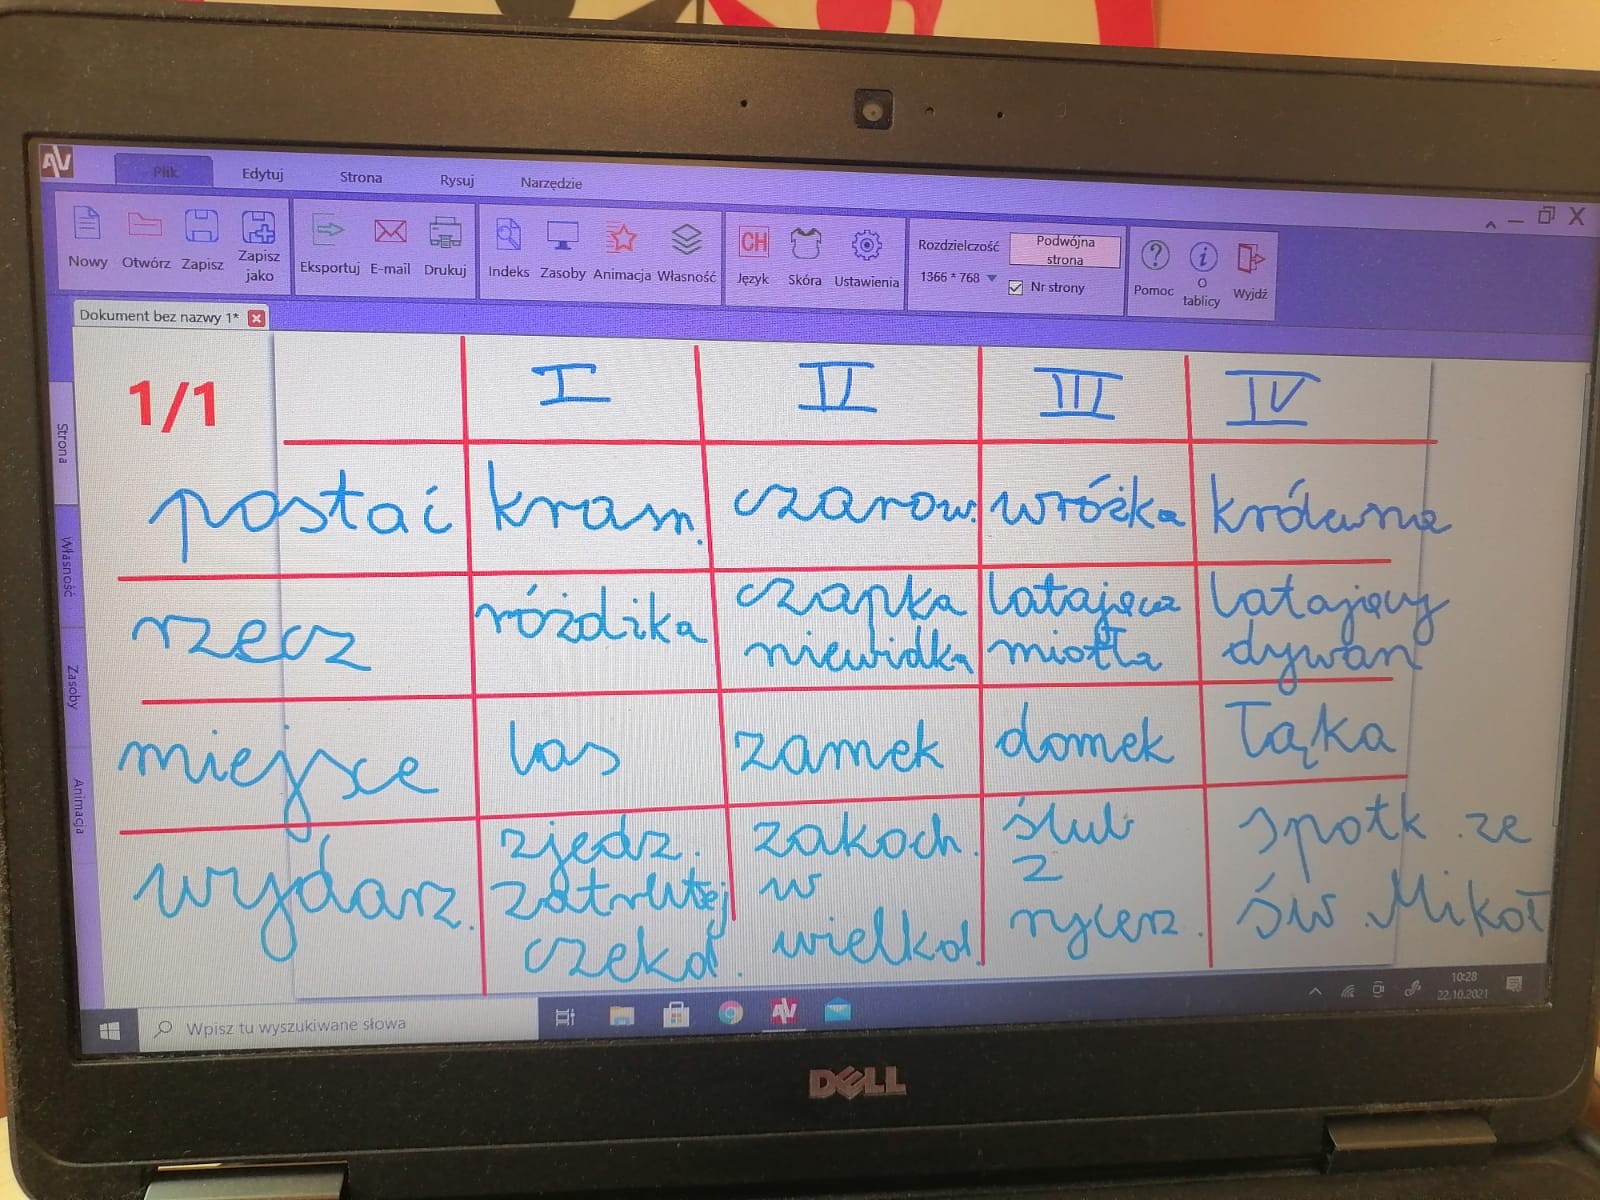 Plik Edytuj Strona Rysuj Narzędzie
Nowy Otwórz Zapisz Zapisz jako Eksportuj E-mail Drukuj Indeks Zasoby Animacja Własność CH Język Skóra Ustawienia
Rozdzielczość Podwójna strona
1366 * 768 Nr strony
Pomoc O tablicy Wyjdź
Dokument bez nazwy 1*
Strona
Własność
Zasoby
Animacja
1/1
I II III IV
postać krasn. czarow. wróżka królewna
rzecz różdżka czapka niewidka latająca miotła latający dywan
miejsce las zamek domek łąka
wydarz. zjedz. zatrutej czekol. zakoch. w wielkol. ślub z rycerz. spotk. ze św. Mikoł
Wpisz tu wyszukiwane słowa
10:28
22.10.2021
DELL